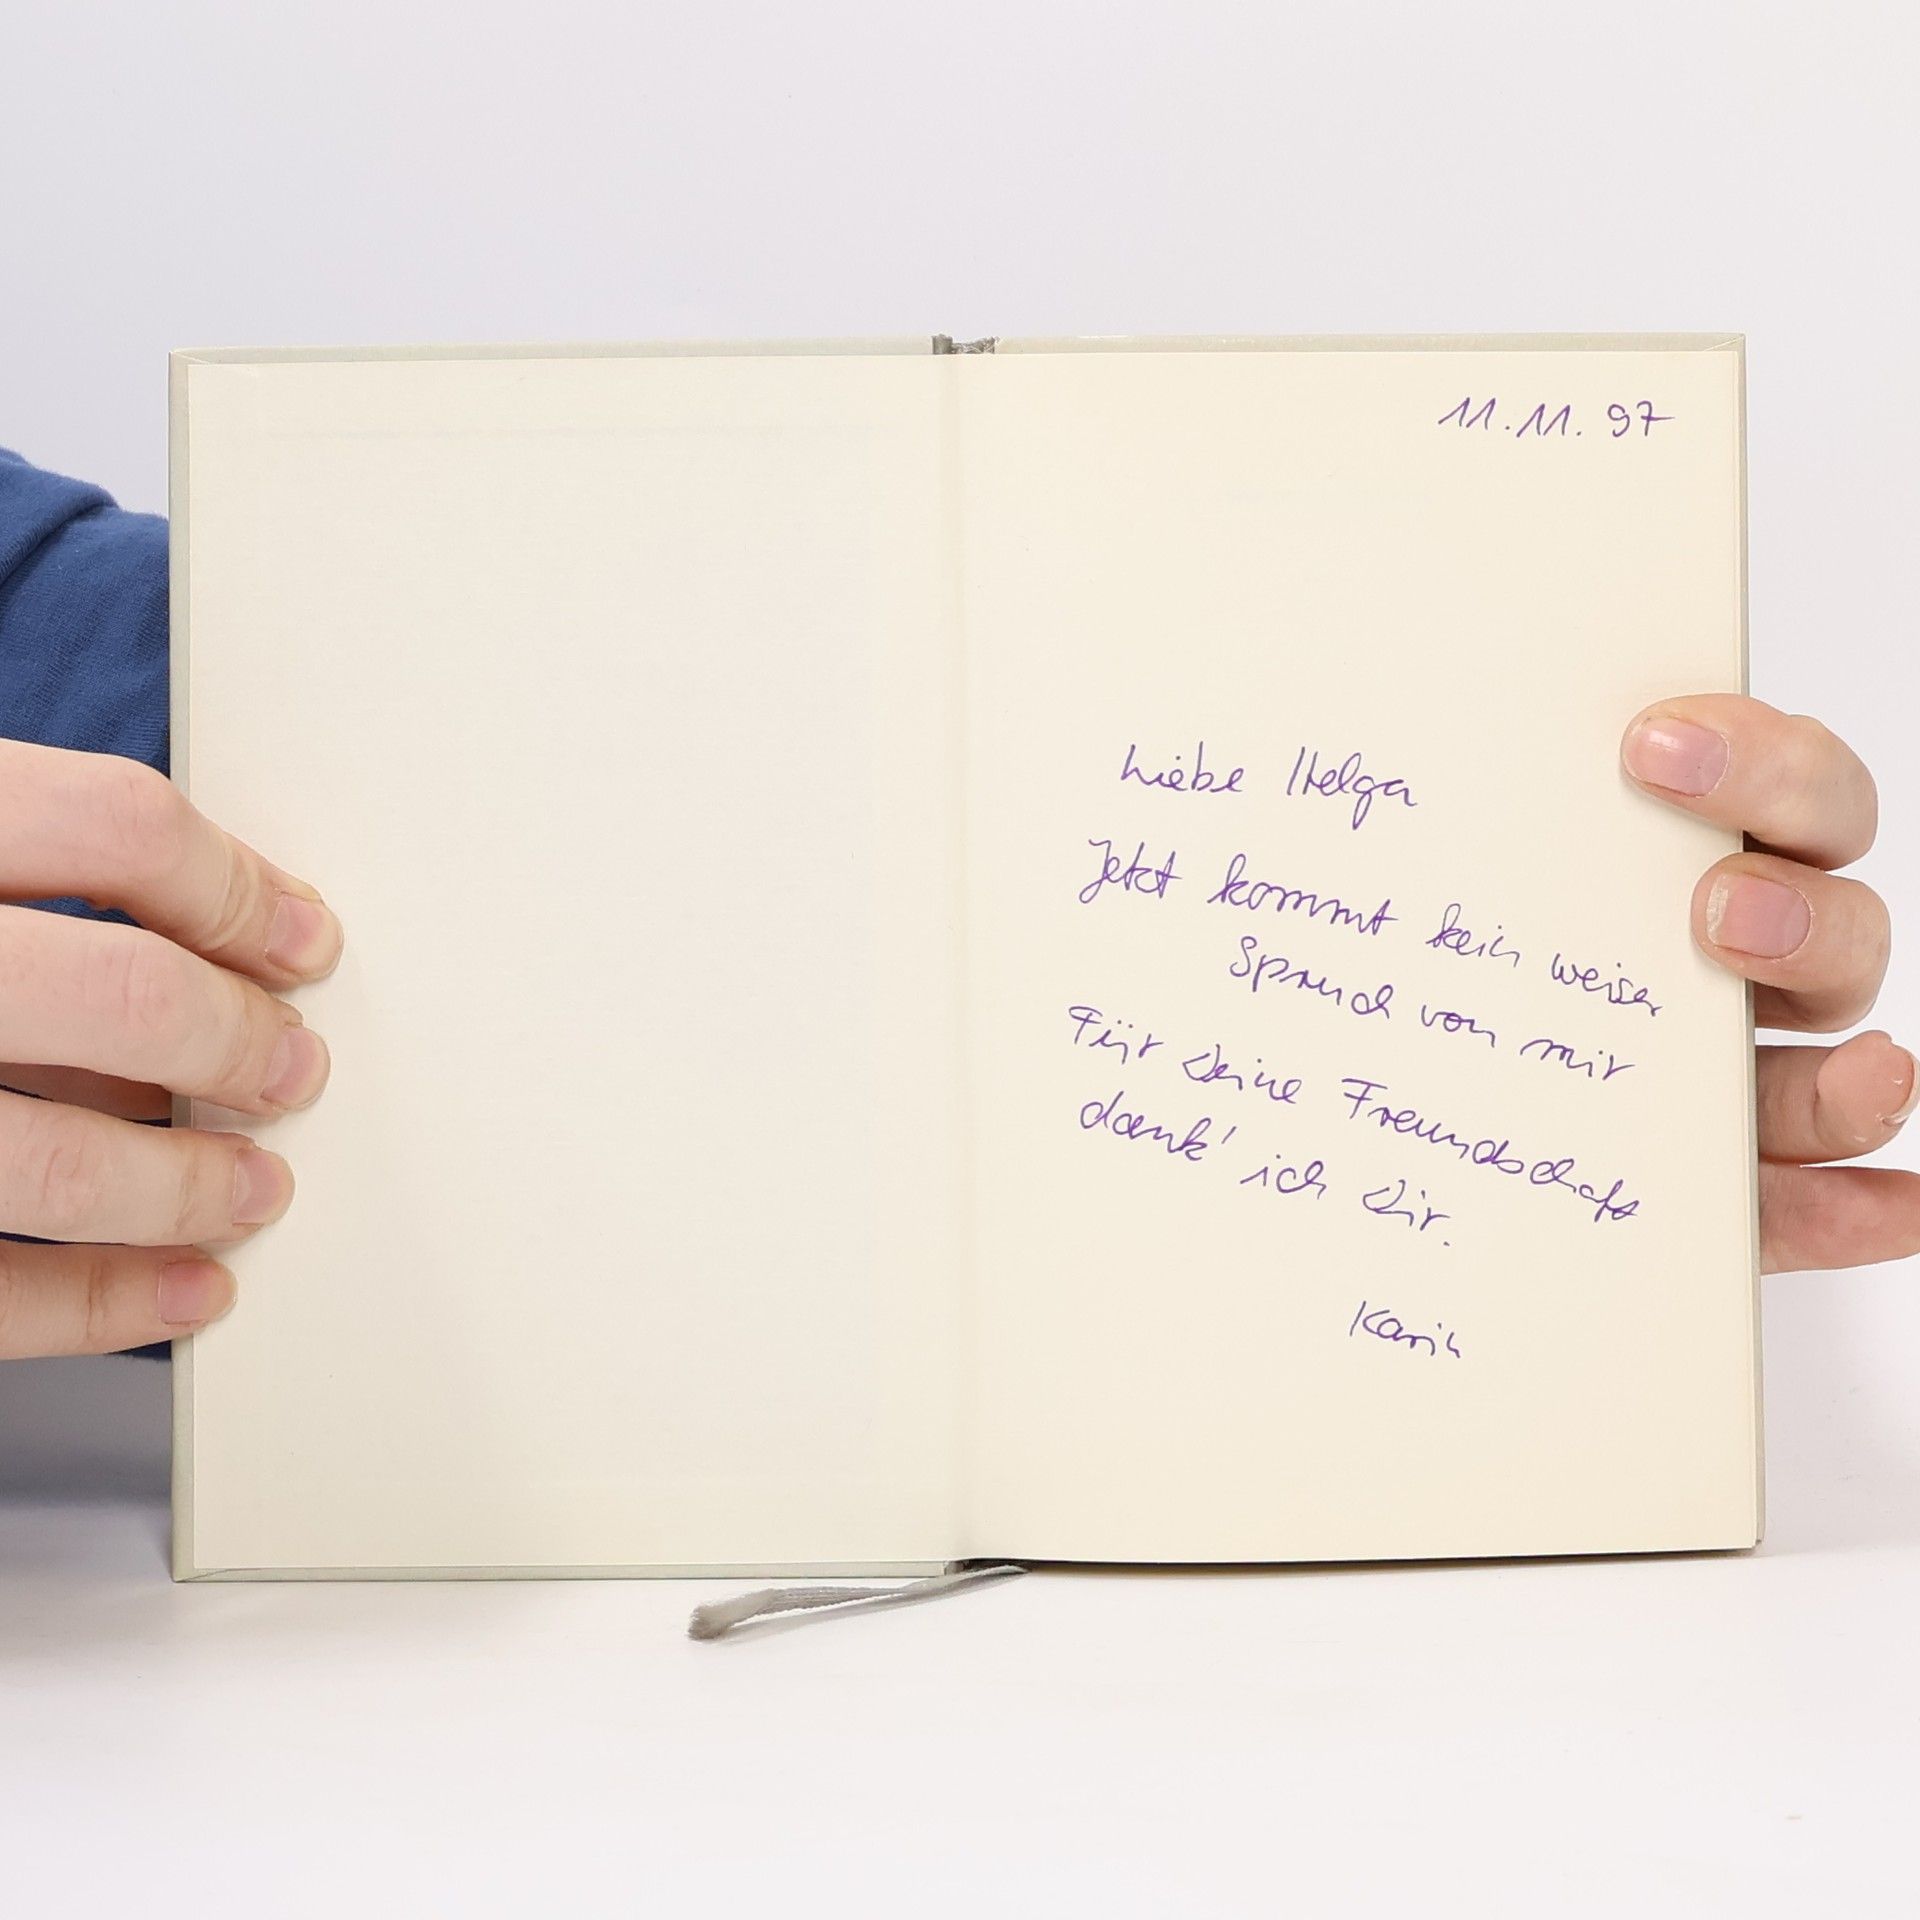 11.11.97
Liebe Helga
Jetzt kommt kein weiser
Spruch von mir
Für Deine Freundschaft
dank' ich Dir.
Karin